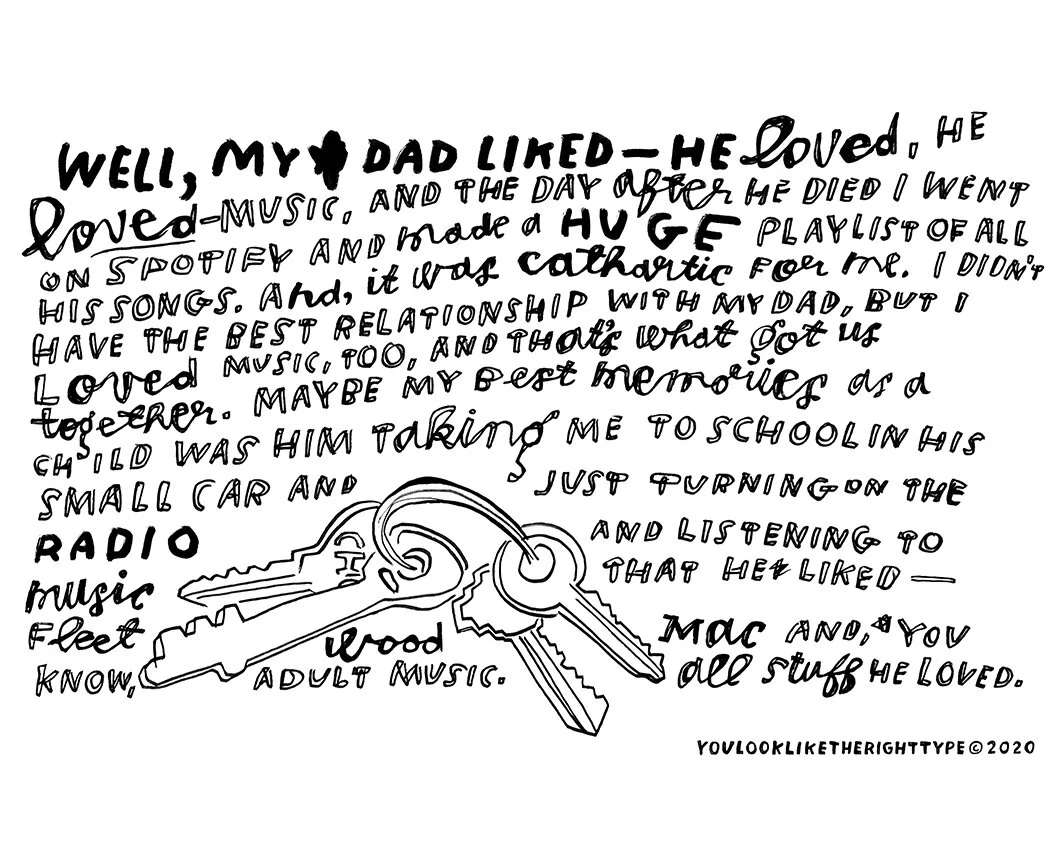 WELL, MY DAD LIKED — HE loved, HE
loved — MUSIC, AND THE DAY after HE DIED I WENT
ON SPOTIFY AND made a HUGE PLAYLIST OF ALL
HIS SONGS. And, it was cathartic FOR me. I DIDN'T
HAVE THE BEST RELATIONSHIP WITH MY DAD, BUT I
Loved MUSIC, TOO, AND THAt's what got us
together. MAYBE MY Best memories as a
CHILD WAS HIM Taking ME TO SCHOOL IN HIS
SMALL CAR AND JUST TURNING ON THE
RADIO AND LISTENING TO
music THAT HE LIKED —
Fleet wood Mac AND, YOU
KNOW, ADULT MUSIC. all stuff HE LOVED.
YOULOOKLIKETHERIGHTTYPE © 2020